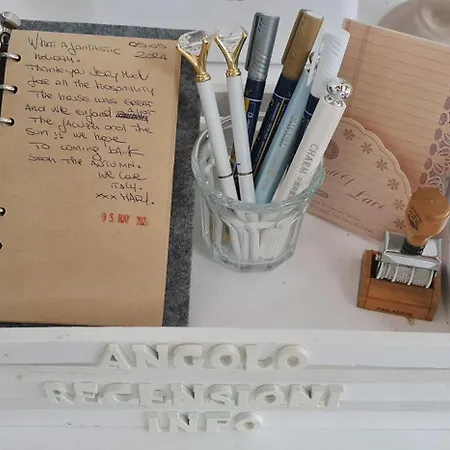 What a fantastic 05.05
holiday. 2024
Thank you very much
for all the hospitality
The house was great
and we enjoyed a lot
The garden and the
sun!! we hope
to coming back
soon the autumn.
we love
Italy.
xxx Mary.
05 MAY
CHARM
Lace
ANGOLO
RECENSIONI
INFO